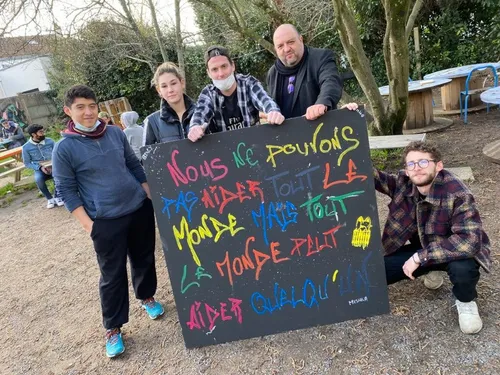 Nous NE POUVONS
PAS AIDER TOUT LE
MONDE MAIS TOUT
LE MONDE PEUT
AIDER QUELQU'UN